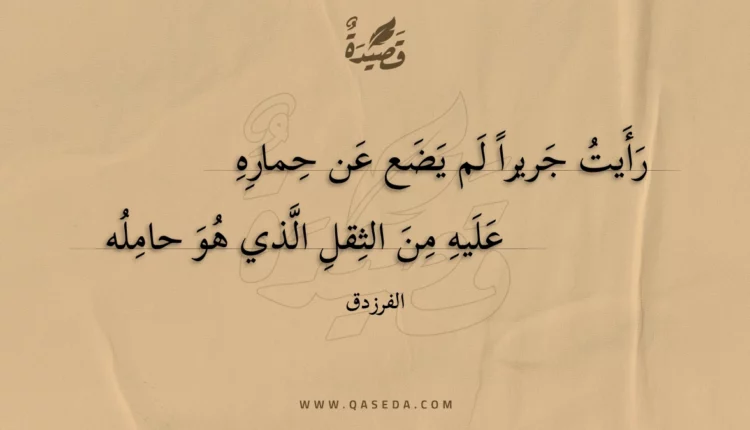 قَصِيْدَةٌ
رَأَيتُ جَريراً لَم يَضَع عَن حِمارِهِ
عَلَيهِ مِنَ الثِقلِ الَّذي هُوَ حامِلُه
الفرزدق
WWW.QASEDA.COM